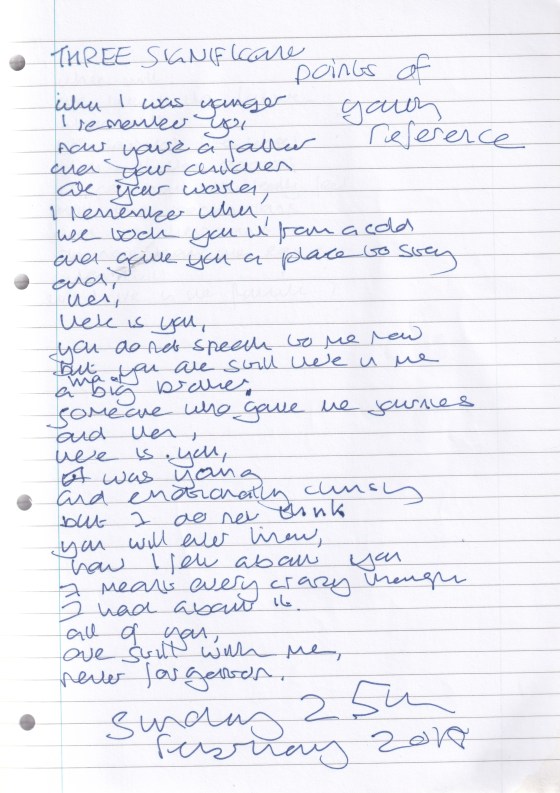 THREE SIGNIFICANT
points of
youth
reference
when I was younger
I remember you,
now you're a father
and your children
are your world,
I remember when,
we took you in from a cold
and gave you a place to stay
and,
then,
there is you,
you do not speak to me now
but you are still here in me
a big brother.
someone who gave me journies
and then,
there is you,
I was young
and emotionally clumsy
but I do not think
you will ever know,
how I felt about you
I meant every crazy thought
I had about it.
all of you,
are still with me,
never forgotten.
Sunday 25th
February 2018